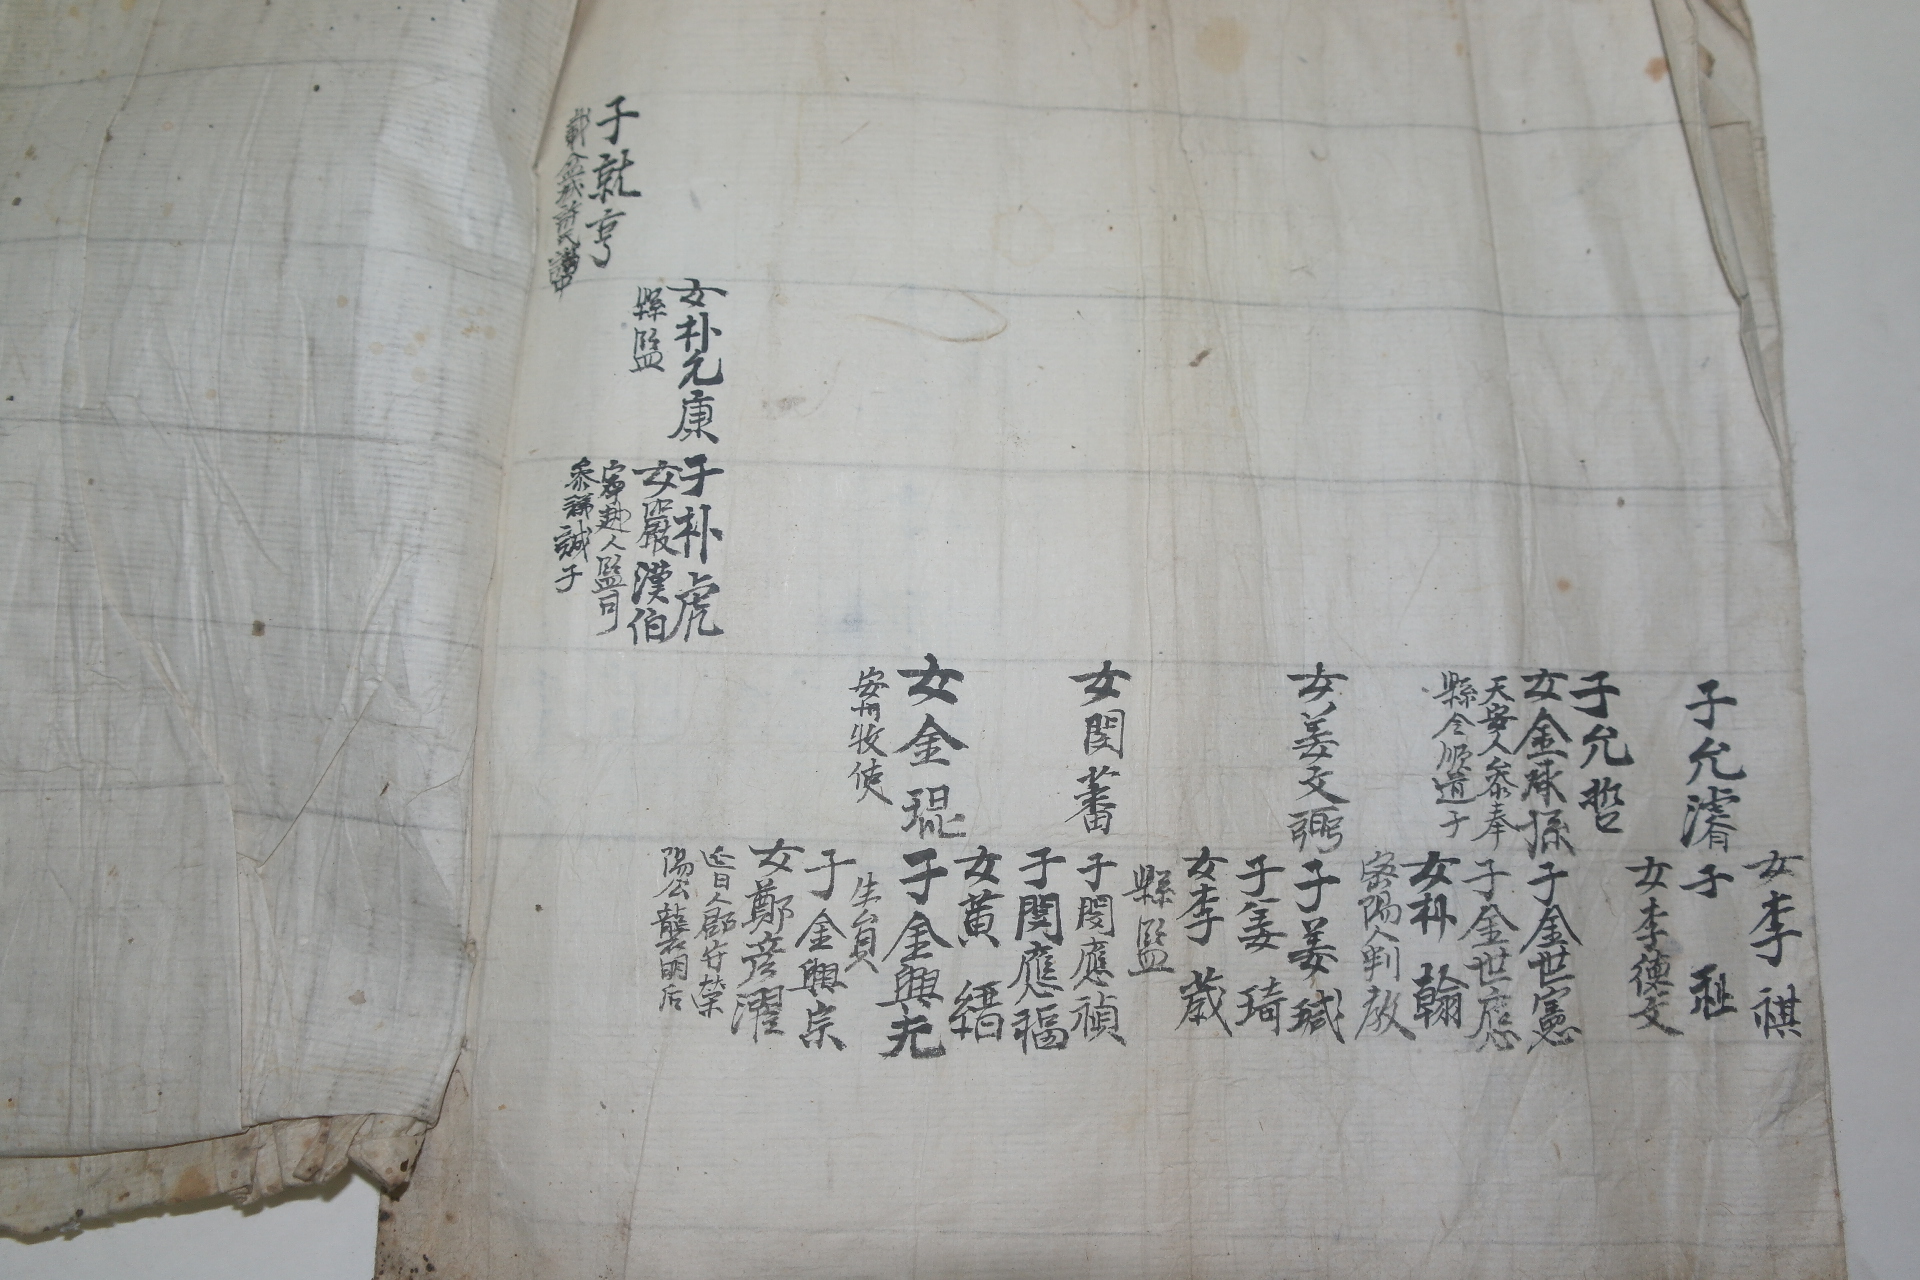 女李祺
子允濬
子祉
女李德文
子允哲
女金承孫
天安人參奉
縣令順道子
子金世憲
子金世應
女朴翰
密陽人判教
女姜文弼
子姜瑊
子姜琦
女李葳
縣監
女閔蕃
子閔應禎
子閔應福
女黃縉
女金琨
安州牧使
子金興光
生員
子金興宗
女鄭彦濯
晋人郡守榮
陽公襲明后
女朴元康
縣監
子朴虎
女嚴漢伯
寧越人監司
叅議誠子
子就亨